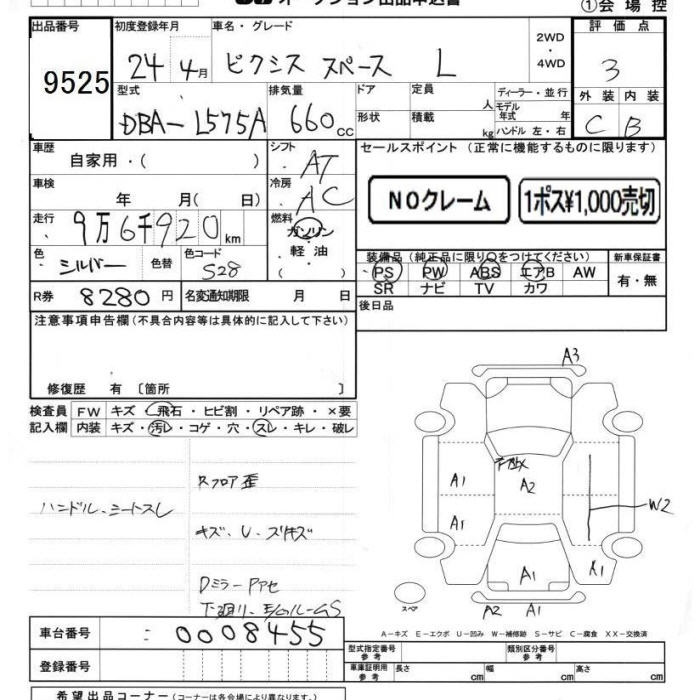 ①会場控
出品番号
初度登録年月
車名・グレード
評価点
9525
24年4月
ピクシス スペース L
2WD
・
4WD
3
型式
排気量
ドア
定員
ディーラー・並行
外装
内装
DBA-L575A
660cc
人
モデル年式
年
C
B
形状
積載
kg
ハンドル 左・右
車歴
シフト
セールスポイント(正常に機能するものに限ります)
自家用・( )
AT
車検
冷房
NOクレーム
1ポス¥1,000売切
年 月( 日)
AC
走行
燃料
9万6千920km
ガソリン
・
軽油
( )
色
色替
色コード
装備品(純正品に限り○をつけてください)
新車保証書
シルバー
S28
PS PW ABS エアB AW
有・無
SR ナビ TV カワ
R券
8280円
名変通知期限
月 日
後日品
注意事項申告欄(不具合内容等は具体的に記入して下さい)
修復歴 有〔箇所 〕
検査員
記入欄
FW
キズ・飛石・ヒビ割・リペア跡・×要
内装
キズ・汚レ・コゲ・穴・スレ・キレ・破レ
Rフロア歪
ハンドル、シートスレ
キズ、U、スリキズ
A3
A2
A1
A1
W2
A1
スペア
A2
A1
A-キズ E-エクボ U-凹み W-補修跡 S-サビ C-腐食 XX-交換済
車台番号
0008455
型式指定番号
参考
類別区分番号
参考
登録番号
車庫証明用
参考
長さ
cm
幅
cm
高さ
cm
希望出品コーナー(コーナーは各会場により異なります。)